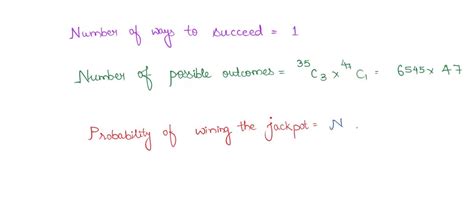 Number of ways to succeed = 1
Number of possible outcomes = ³⁵C₃ x ⁴⁷C₁ = 6545 x 47
Probability of wining the jackpot = N .